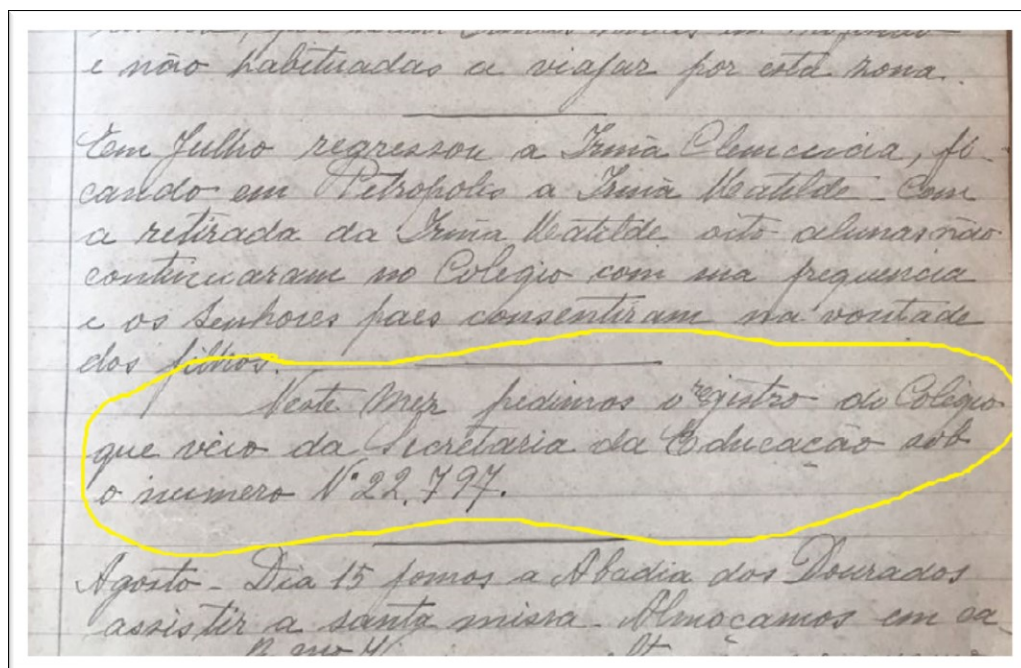 e não habituadas a viajar por esta zona.
Em Julho regressou a Irmã Clemencia, fi-
cando em Petropolis a Irmã Matilde. Com
a retirada da Irmã Matilde oito alunas não
continuaram no Colégio com sua frequencia
e os Senhores paes consentiram na vontade
dos filhos.
Neste Mez pedimos o registro do Colégio
que veio da Secretaria da Educação sob
o numero Nº 22.797.
Agosto - Dia 15 fomos a Abadia dos Dourados
assistir a santa missa. Almoçamos em ca-